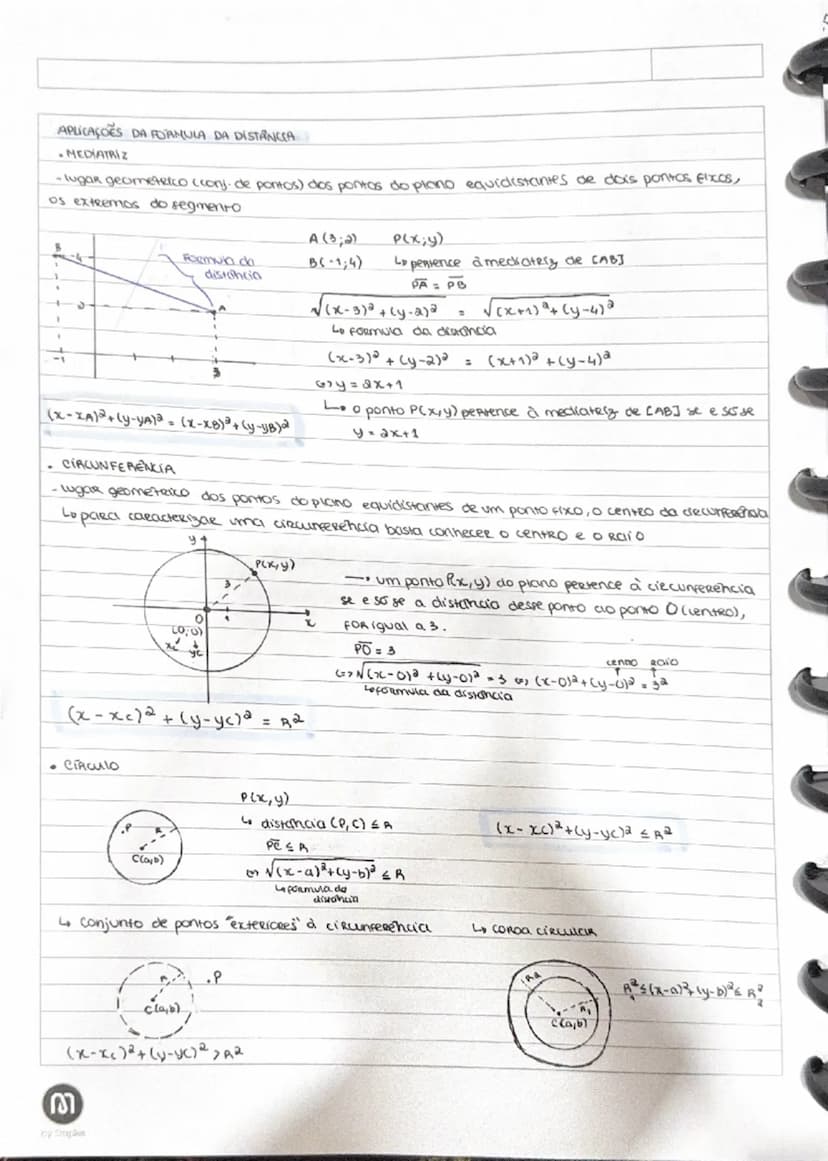 APLICAÇÕES DA FÓRMULA DA DISTÂNCIA
• MEDIATRIZ
- lugar geométrico (conj. de pontos) dos pontos do plano equidistantes de dois pontos fixos,
os extremos do segmento
A(3;2) P(x;y)
B(-1;4) ↳ pertence à mediatriz de [AB]
P̅A̅ = P̅B̅
√(x-3)² + (y-2)² = √(x+1)² + (y-4)²
↳ fórmula da distância
(x-3)² + (y-2)² = (x+1)² + (y-4)²
⇔ y = 2x+1
↳ o ponto P(x,y) pertence à mediatriz de [AB] se e só se
y = 2x+1
B 4
Fórmula da
distância
2 A
-1 3
(x-xA)²+(y-yA)² = (x-xB)²+(y-yB)²
• CIRCUNFERÊNCIA
- lugar geométrico dos pontos do plano equidistantes de um ponto fixo, o centro da circunferência
↳ para caracterizar uma circunferência basta conhecer o centro e o raio
y
P(x,y)
3
O 1 x
(0;0)
xc yc
→ um ponto P(x,y) do plano pertence à circunferência
se e só se a distância desse ponto ao ponto O (centro),
for igual a 3.
P̅O̅ = 3
centro raio
⇔ √(x-0)² + (y-0)² = 3 ⇔ (x-0)² + (y-0)² = 3²
↳ fórmula da distância
(x-xc)² + (y-yc)² = R²
• CÍRCULO
P(x,y)
↳ distância (P,C) ≤ R
P̅C̅ ≤ R
⇔ √(x-a)²+(y-b)² ≤ R
↳ fórmula da
distância
.P R
C(a,b)
(x-xc)²+(y-yc)² ≤ R²
↳ conjunto de pontos "exteriores" à circunferência ↳ coroa circular
R .P
C(a,b)
(x-xc)²+(y-yc)² > R²
R2
R1
C(a,b)
R₁² ≤ (x-a)²+(y-b)² ≤ R₂²
by Staples